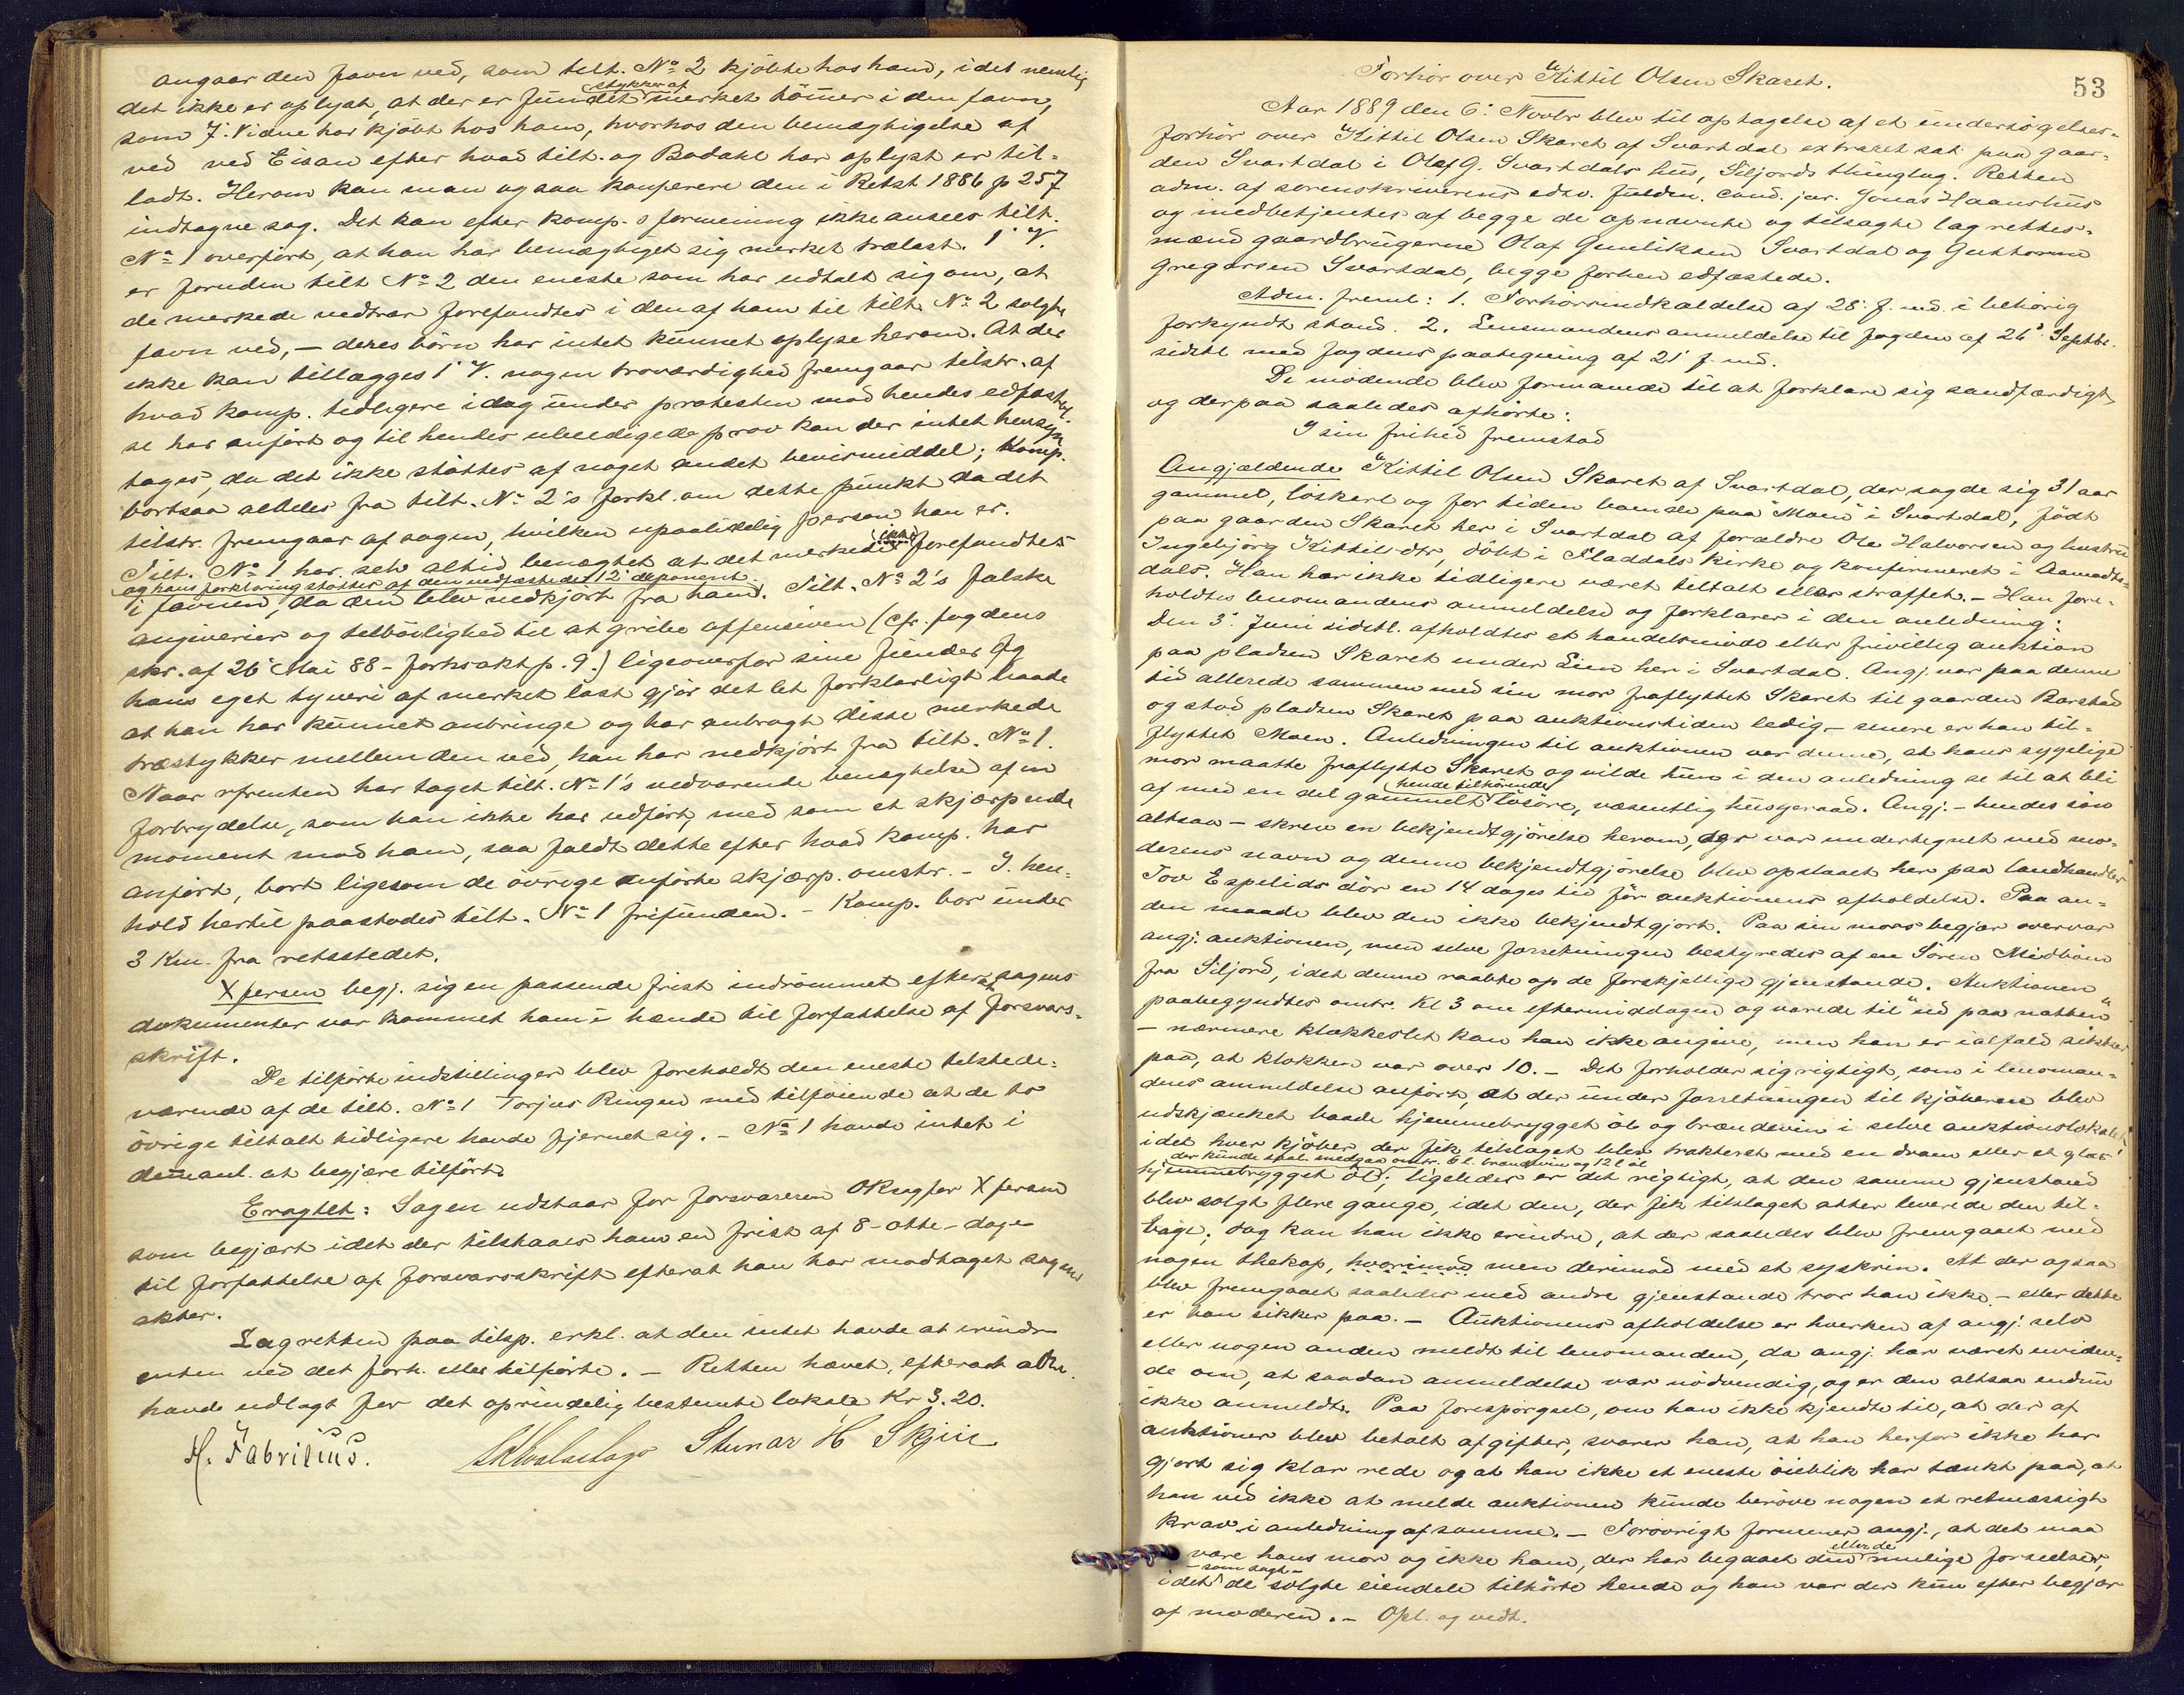 angaar den favn ved, som tilt. No 2 kjöbte hos ham, idet nemlig
det ikke er oplyst, at der er fundet stykker af merket tömmer i den favn,
som 7. Vidne har kjöbt hos ham, hvorhos den bemægtigelse af
ved ved Eisan efter hvad tilt. og Bodahl har oplyst er til=
ladt. Herom kan man ogsaa konferere den i Retst 1886 p 257
indtagne sag. Det kan efter komp.s formening ikke ansees tilt.
No 1 overfört, at han har bemægtiget sig merket trælast. 1' V.
er foruden tilt No 2 den eneste som har udtalt sig om, at
de merkede vedtrær forefandtes i den af ham til tilt. No 2 solgte
favn ved, – deres börn har intet kunnet oplyse herom. At der
ikke kan tillægges 1' V. nogen troværdighed fremgaar tilstr. af
hvad komp. tidligere idag under protesten mod hendes edfæstel-
se har anfört og til hendes ubeedigede prov kan der intet hensyn
tages, da det ikke stöttes af noget andet bevismiddel; komp.
bortsaa aldeles fra tilt. No 2's forkl. om dette punkt da det
tilstr. fremgaar af sagen, hvilken upaalidelig person han er.
Tilt. No 1 har selv altid benegtet at det merkede ikke forefandtes
og hans forklaring stöttes af den edfæstede 12' deponent
i favnen, da den blev nedkjört fra ham. Tilt. No 2's falske
angiverier og tilböielighed til at gribe offensiven (cfr. fogdens
skr. af 26' Mai 88 – forhsakt p. 9.) ligeoverfor sine fiender og
hans eget tyveri af merket last gjör det let forklarligt baade
at han har kunnet anbringe og har anbragt disse merkede
træstykker mellem den ved, han har nedkjört fra tilt. No 1.
Naar xfrenten har taget tilt. No 1's vedvarende benegtelse af en
forbrydelse, som han ikke har udfört, med som et skjærpende
moment mod ham, saa faldt dette efter hvad komp. har
anfört, bort ligesom de övrige anförte skjærp. omstr. – I hen=
hold hertil paastodes tilt. No 1 frifunden. – Komp. bor under
3 Km. fra retsstedet.
Xfersen begj. sig en passende frist indrömmet efter at sagens
dokumenter var kommet ham i hænde til forfattelse af forsvars=
skrift.
De tilförte indstillinger blev foreholdt den eneste tilstede=
værende af de tilt. No 1 Torjus Ringen med tilföiende at de to
övrige tiltalte tidligere havde fjernet sig. – No 1 havde intet i
den anl. at begjære tilfört.
Eragtet: Sagen udstaar for forsvareren Oksagfør Xfersen
som begjært idet der tilstaaes ham en frist af 8 – otte – dage
til forfattelse af forsvarsskrift efterat han har modtaget sagens
akter.
Lagretten paa tilsp. erkl. at den intet havde at erindre
enten ved det forh. eller tilförte. – Retten hævet, efterat adm.
havde udlagt for det oprindelig bestemte lokale Kr 3.20.
H. Fabritius. Stenar H Skjeie
53
Forhör over Kittil Olsen Skaret.
Aar 1889 den 6' Novbr blev til optagelse af et undersögelses=
forhör over Kittil Olsen Skaret af Svartdal extraret sat paa gaar=
den Svartdal i Olaf G. Svartdals hus, Siljords thinglag. Retten
adm. af sorenskriverens edsv. fuldm. cand. jur. Jonas Haanshus
og medbetjentes af begge de opnævnte og tilsagte lagrettes=
mænd gaardbrugerne Olaf Gunliksen Svartdal og Guttorm
Gregarsen Svartdal, begge forhen edfæstede.
Adm. freml: 1. Forhörsindkaldelse af 28' f. md. i behörig
forkyndt stand. 2. Lensmandens anmeldelse til fogden af 26' Septbr.
sidstl. med fogdens paategning af 21' f. md.
De mödende blev formanede til at forklare sig sandfærdigt,
og derpaa saaledes afhörte:
I sin frihed fremstod
Angjældende Kittil Olsen Skaret af Svartdal, der sagde sig 31 aar
gammel, löskarl og for tiden boende paa "Moen" i Svartdal, födt
paa gaarden Skaret her i Svartdal af forældre Ole Halvorsen og hustru
Ingebjörg Kittilsdtr, döbt i Fladdals kirke og konfirmeret i Aamodts=
dals. Han har ikke tidligere været tiltalt eller straffet. – Han fore=
holdtes lensmandens anmeldelse og forklarer i den anledning:
Den 3' Juni sidstl. afholdtes et handelsmöde eller frivillig auktion
paa pladsen Skaret under Lien her i Svartdal. Angj. var paa denne
tid allerede sammen med sin mor fraflyttet Skaret til gaarden Barstad
og stod pladsen Skaret paa auktionstiden ledig – senere er han til=
flyttet Moen. Anledningen til auktionen var denne, at hans sygelige
mor maatte fraflytte Skaret og vilde hun i den anledning se til at bli
af med en del gammelt hende tilhörende lösöre, væsentlig husgeraad. Angj. – hendes sön
altsaa – skrev en bekjendtgjörelse herom, der var undertegnet med mo=
derens navn og denne bekjendtgjörelse blev opslaaet her paa landhandler
Tov Espelids dör en 14 dages tid för auktionens afholdelse. Paa an=
den maade blev den ikke bekjendtgjort. Paa sin mors begjær overvar
angj. auktionen, men selve forretningen bestyredes af en Sören Midböen
fra Siljord, idet denne raabte op de forskjellige gjenstande. Auktionen
paabegyndtes omtr. Kl 3 om eftermiddagen og varede til "ud paa natten"
– nærmere klokkeslet kan han ikke angive, men han er ialfald sikker
paa, at klokken var over 10. – Det forholder sig rigtigt, som i lensman=
dens anmeldelse anfört, at der under forretningen til kjöberne blev
udskjænket baade hjemmebrygget öl og brændevin i selve auktionslokalet,
idet hver kjöber, der fik tilslaget blev trakteret med en dram eller et glas
der kunde ialt medgaa omtr. 6 l. brændevin og 12 l öl
hjemmebrygget öl; ligeledes er det rigtigt, at den samme gjenstand
blev solgt flere gange, idet den, der fik tilslaget atter leverede den til=
bage; dog kan han ikke erindre, at der saaledes blev fremgaaet med
nogen thekop, hvorimod men derimod med et syskrin. At der ogsaa
blev fremgaaet saaledes med andre gjenstande tror han ikke – eller dette
er han sikker paa. – Auktionens afholdelse er hverken af angj. selv
eller nogen anden meldt til lensmanden, da angj. har været uviden=
de om, at saadan anmeldelse var nödvendig, og er den altsaa endnu
ikke anmeldt. Paa forespörgsel, om han ikke kjendte til, at der af
auktioner blev betalt afgifter, svarer han, at han herfor ikke har
gjort sig klar rede og at han ikke et eneste öieblik har tænkt paa, at
han ved ikke at melde auktionen kunde beröve nogen et retmæssigt
krav i anledning af samme. – Forövrigt formener angj., at det maa
være hans mor og ikke ham, der har begaaet den eller de mulige forseelser,
idet – som sagt – de solgte eiendele tilhörte hende og han var der kun efter begjær
af moderen. – Opl. og vedt.